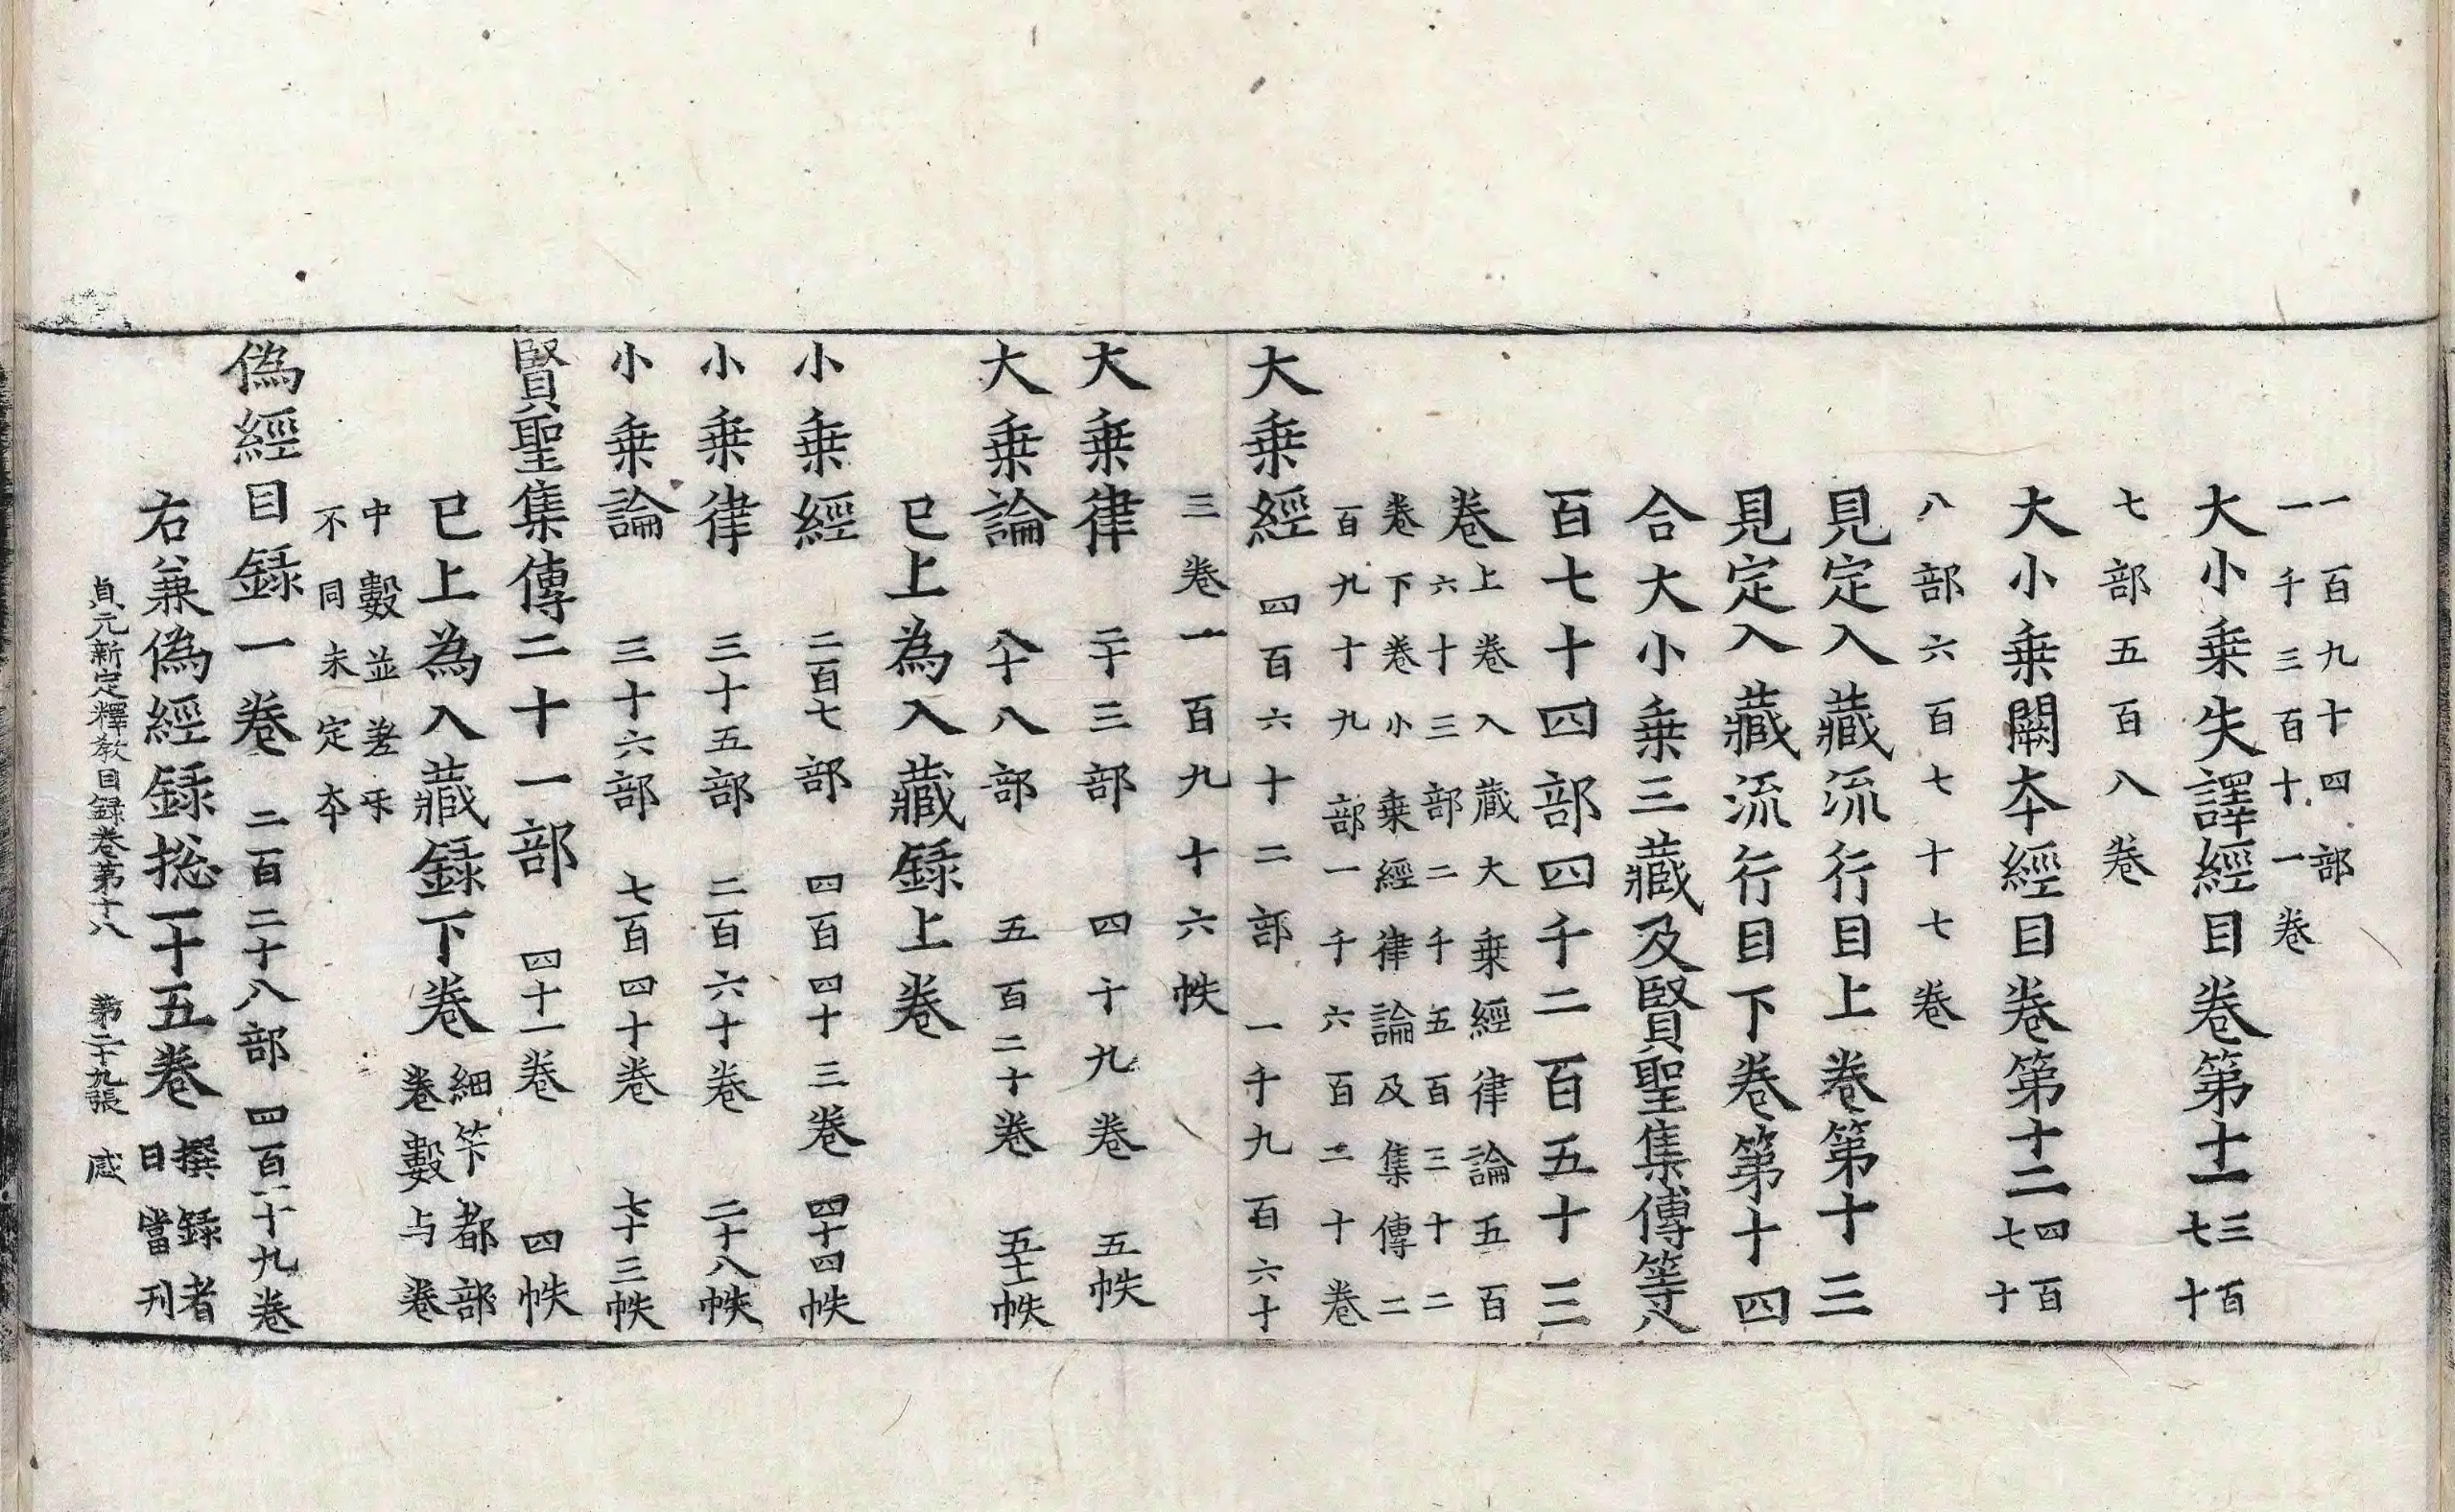 一百九十四部
一千三百十一卷
大小乗失譯經目卷第十一 三百七十
七部五百八卷
大小乗闕夲經目卷第十二 四百七十
八部六百七十七卷
見定入藏流行目上卷第十三
見定入藏流行目下卷第十四
合大小乗三藏及賢聖集傳等八
百七十四部四千二百五十三
卷 上卷入藏大乗經律論五百
六十三部二千五百三十二
卷下卷小乗經律論及集傳二
百九十九部一千六百二十卷
大乗經 四百六十二部 一千九百六十
三卷一百九十六帙
大乗律 二十三部 四十九卷 五帙
大乗論 八十八部 五百二十卷 五十一帙
已上為入藏録上卷
小乗經 二百七部 四百四十三卷 四十四帙
小乗律 三十五部 二百六十卷 二十八帙
小乗論 三十六部 七百四十卷 七十三帙
賢聖集傳二十一部 四十一卷 四帙
已上為入藏録下卷 細笇都部
卷數与卷
中數並差㸦
不同未定夲
偽經目録一卷 二百二十八部 四百一十九卷
右兼偽經録捴一十五卷 撰録者
目當刊
貞元新定釋教目録卷第十八 第二十九張 感